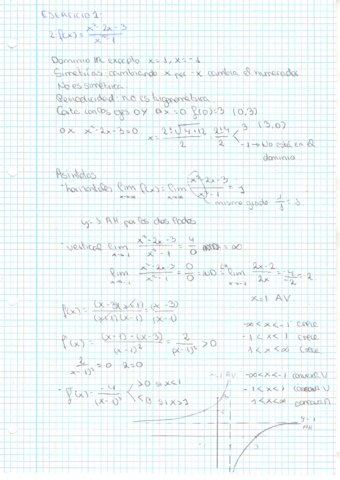 EJERCICIO 1:
2. f(x) = (x²-2x-3)/(x²-1)
Dominio ℝ excepto x=1, x=-1
Simetrías: cambiando x por -x cambia el numerador
No es simétrica
Periodicidad: no es trigonométrica
Corte con los ejes OY x=0 f(0)=3 (0,3)
OX x²-2x-3=0 x = (2±√(4+12))/2 (2±4)/2 3 (3,0)
-1 → No está en el dominio
Asíntotas
· horizontales lim f(x) = lim (x²-2x-3)/(x²-1) = 1
mismo grado 1/1 = 1
AH por los dos lados
· vertical lim x→1 (x²-2x-3)/(x²-1) = 4/0 = ∞
lim x→-1 (x²-2x-3)/(x²-1) = 0/0 = lim x→-1 (2x-2)/2x = 4/-2 = 2
x=1 AV
f(x) = (x-3)(x+1)/(x+1)(x-1) = (x-3)/(x-1)
-∞<x<-1 crece
f'(x) = ((x-1)-(x-3))/(x-1)² = 2/(x-1)² > 0
-1<x<1 crece
1<x<∞ crece
2/(x-1)² = 0 2=0
f''(x) = -4/(x-1)³ >0 si x<1
<0 si x>1
AV
-∞<x<-1 convexa U
-1<x<1 convexa U
1<x<∞ concava ∩
y=1
AH